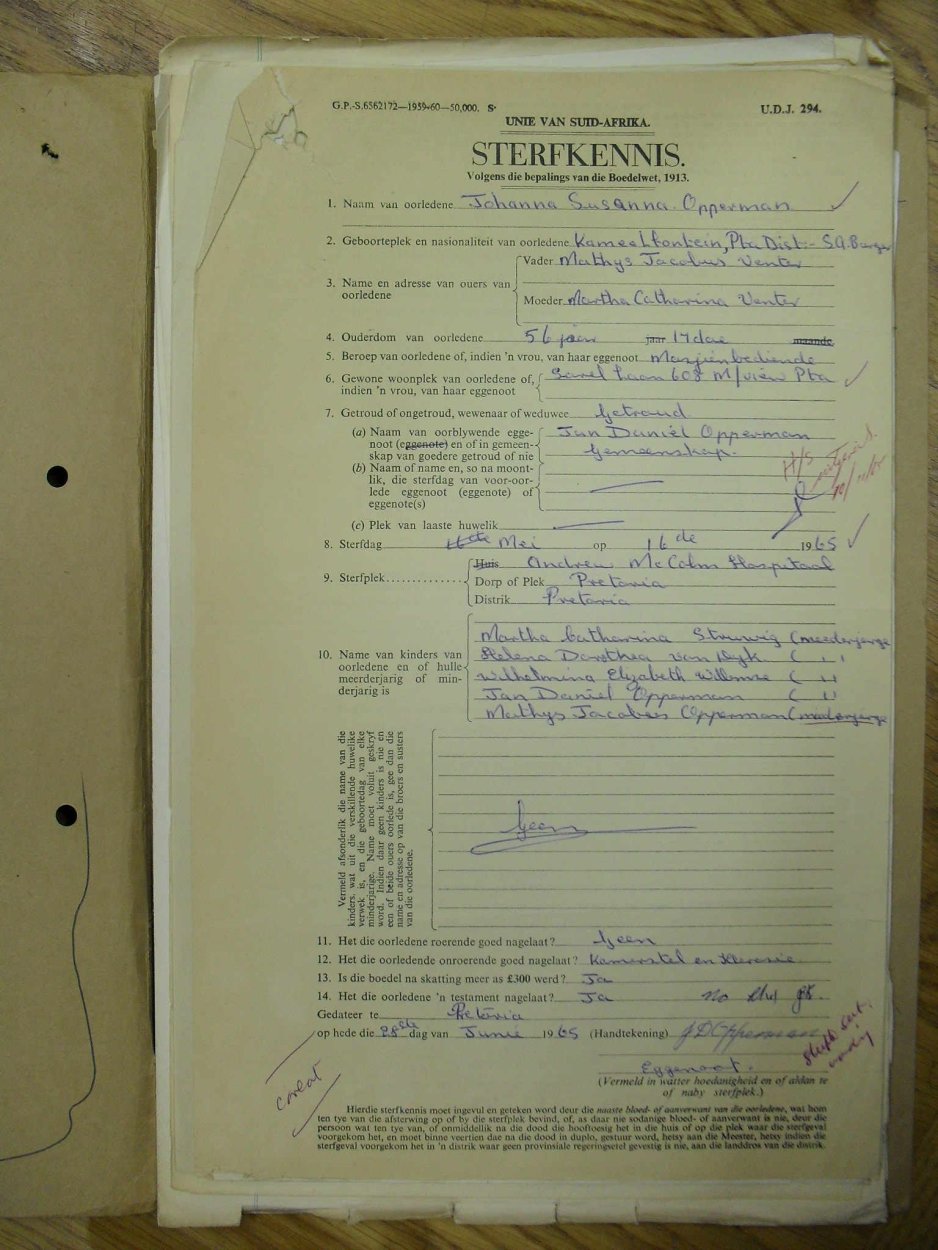 G.P.-S.6562172—1959-60—50,000. S.
U.D.J. 294.
UNIE VAN SUID-AFRIKA.
STERFKENNIS.
Volgens die bepalings van die Boedelwet, 1913.
1. Naam van oorledene Johanna Susanna Opperman
2. Geboorteplek en nasionaliteit van oorledene Kameelfontein, Pta Dist:- S.A. Burger
3. Name en adresse van ouers van oorledene
Vader Mathys Jacobus Venter
Moeder Martha Catharina Venter
4. Ouderdom van oorledene 56 jaar jaar 17 dae maande
5. Beroep van oorledene of, indien 'n vrou, van haar eggenoot
6. Gewone woonplek van oorledene of, indien 'n vrou, van haar eggenoot
laan 608 M/view Pta
7. Getroud of ongetroud, wewenaar of weduwee Getroud
(a) Naam van oorblywende eggenoot (eggenote) en of in gemeenskap van goedere getroud of nie
Jan Daniël Opperman
Gemeenskap.
(b) Naam of name en, so na moontlik, die sterfdag van voor-oorlede eggenoot (eggenote) of eggenote(s)
H/S
(c) Plek van laaste huwelik
8. Sterfdag 16de Mei op 16de 1965
9. Sterfplek
Huis Andrew McColm Hospitaal
Dorp of Plek Pretoria
Distrik Pretoria
10. Name van kinders van oorledene en of hulle meerderjarig of minderjarig is
Martha Catharina Struwig (meerderjarige
Helena Dorothea van Dyk ( ,, ,
Wilhelmina Elizabeth Willemse ( ,,
Jan Daniel Opperman ( ,,
Mathys Jacobus Opperman (
Vermeld afsonderlik die name van die kinders wat uit die verskillende huwelike verwek is, en die geboortedag van elke minderjarige. Name moet voluit geskryf word. Indien daar geen kinders is nie en een of beide ouers oorlede is, gee dan die name en adresse op van die broers en susters van die oorledene.
Geen
11. Het die oorledene roerende goed nagelaat? Geen
12. Het die oorledende onroerende goed nagelaat? Kamerstel en
13. Is die boedel na skatting meer as £300 werd? Ja
14. Het die oorledene 'n testament nagelaat? Ja no
Gedateer te Pretoria
op hede die 28ste dag van Junie 1965 (Handtekening) J D Opperman
Eggenoot.
(Vermeld in watter hoedanigheid en of aldan te of naby sterfplek.)
Hierdie sterfkennis moet ingevul en geteken word deur die naaste bloed- of aanverwant van die oorledene, wat hom
ten tye van die afsterwing op of by die sterfplek bevind, of, as daar nie sodanige bloed- of aanverwant is nie, deur die
persoon wat ten tye van, of onmiddellik na die dood die hooftoesig het in die huis of op die plek waar die sterfgeval
voorgekom het, en moet binne veertien dae na die dood in duplo, gestuur word, hetsy aan die Meester, hetsy indien die
sterfgeval voorgekom het in 'n distrik waar geen provinsiale regeringsetel gevestig is nie, aan die landdros van die distrik.